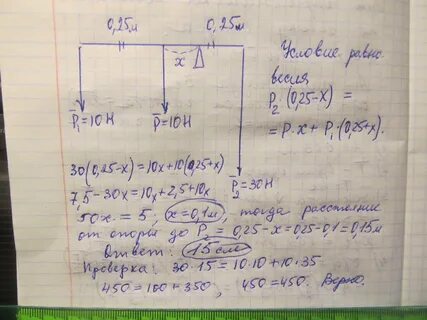 0,25м 0,25м
x
P₁=10Н P=10Н
P₂=30Н
Условие равно
весия
P₂·(0,25-x) =
= P·x + P₁·(0,25+x).
30(0,25-x)=10x+10(0,25+x)
7,5-30x=10x+2,5+10x
50x = 5, x=0,1м, тогда расстояние
от опоры до P₂ = 0,25-x=0,25-0,1=0,15м
Ответ: 15 см
Проверка: 30·15=10·10+10·35
450=100+350, 450=450. Верно.